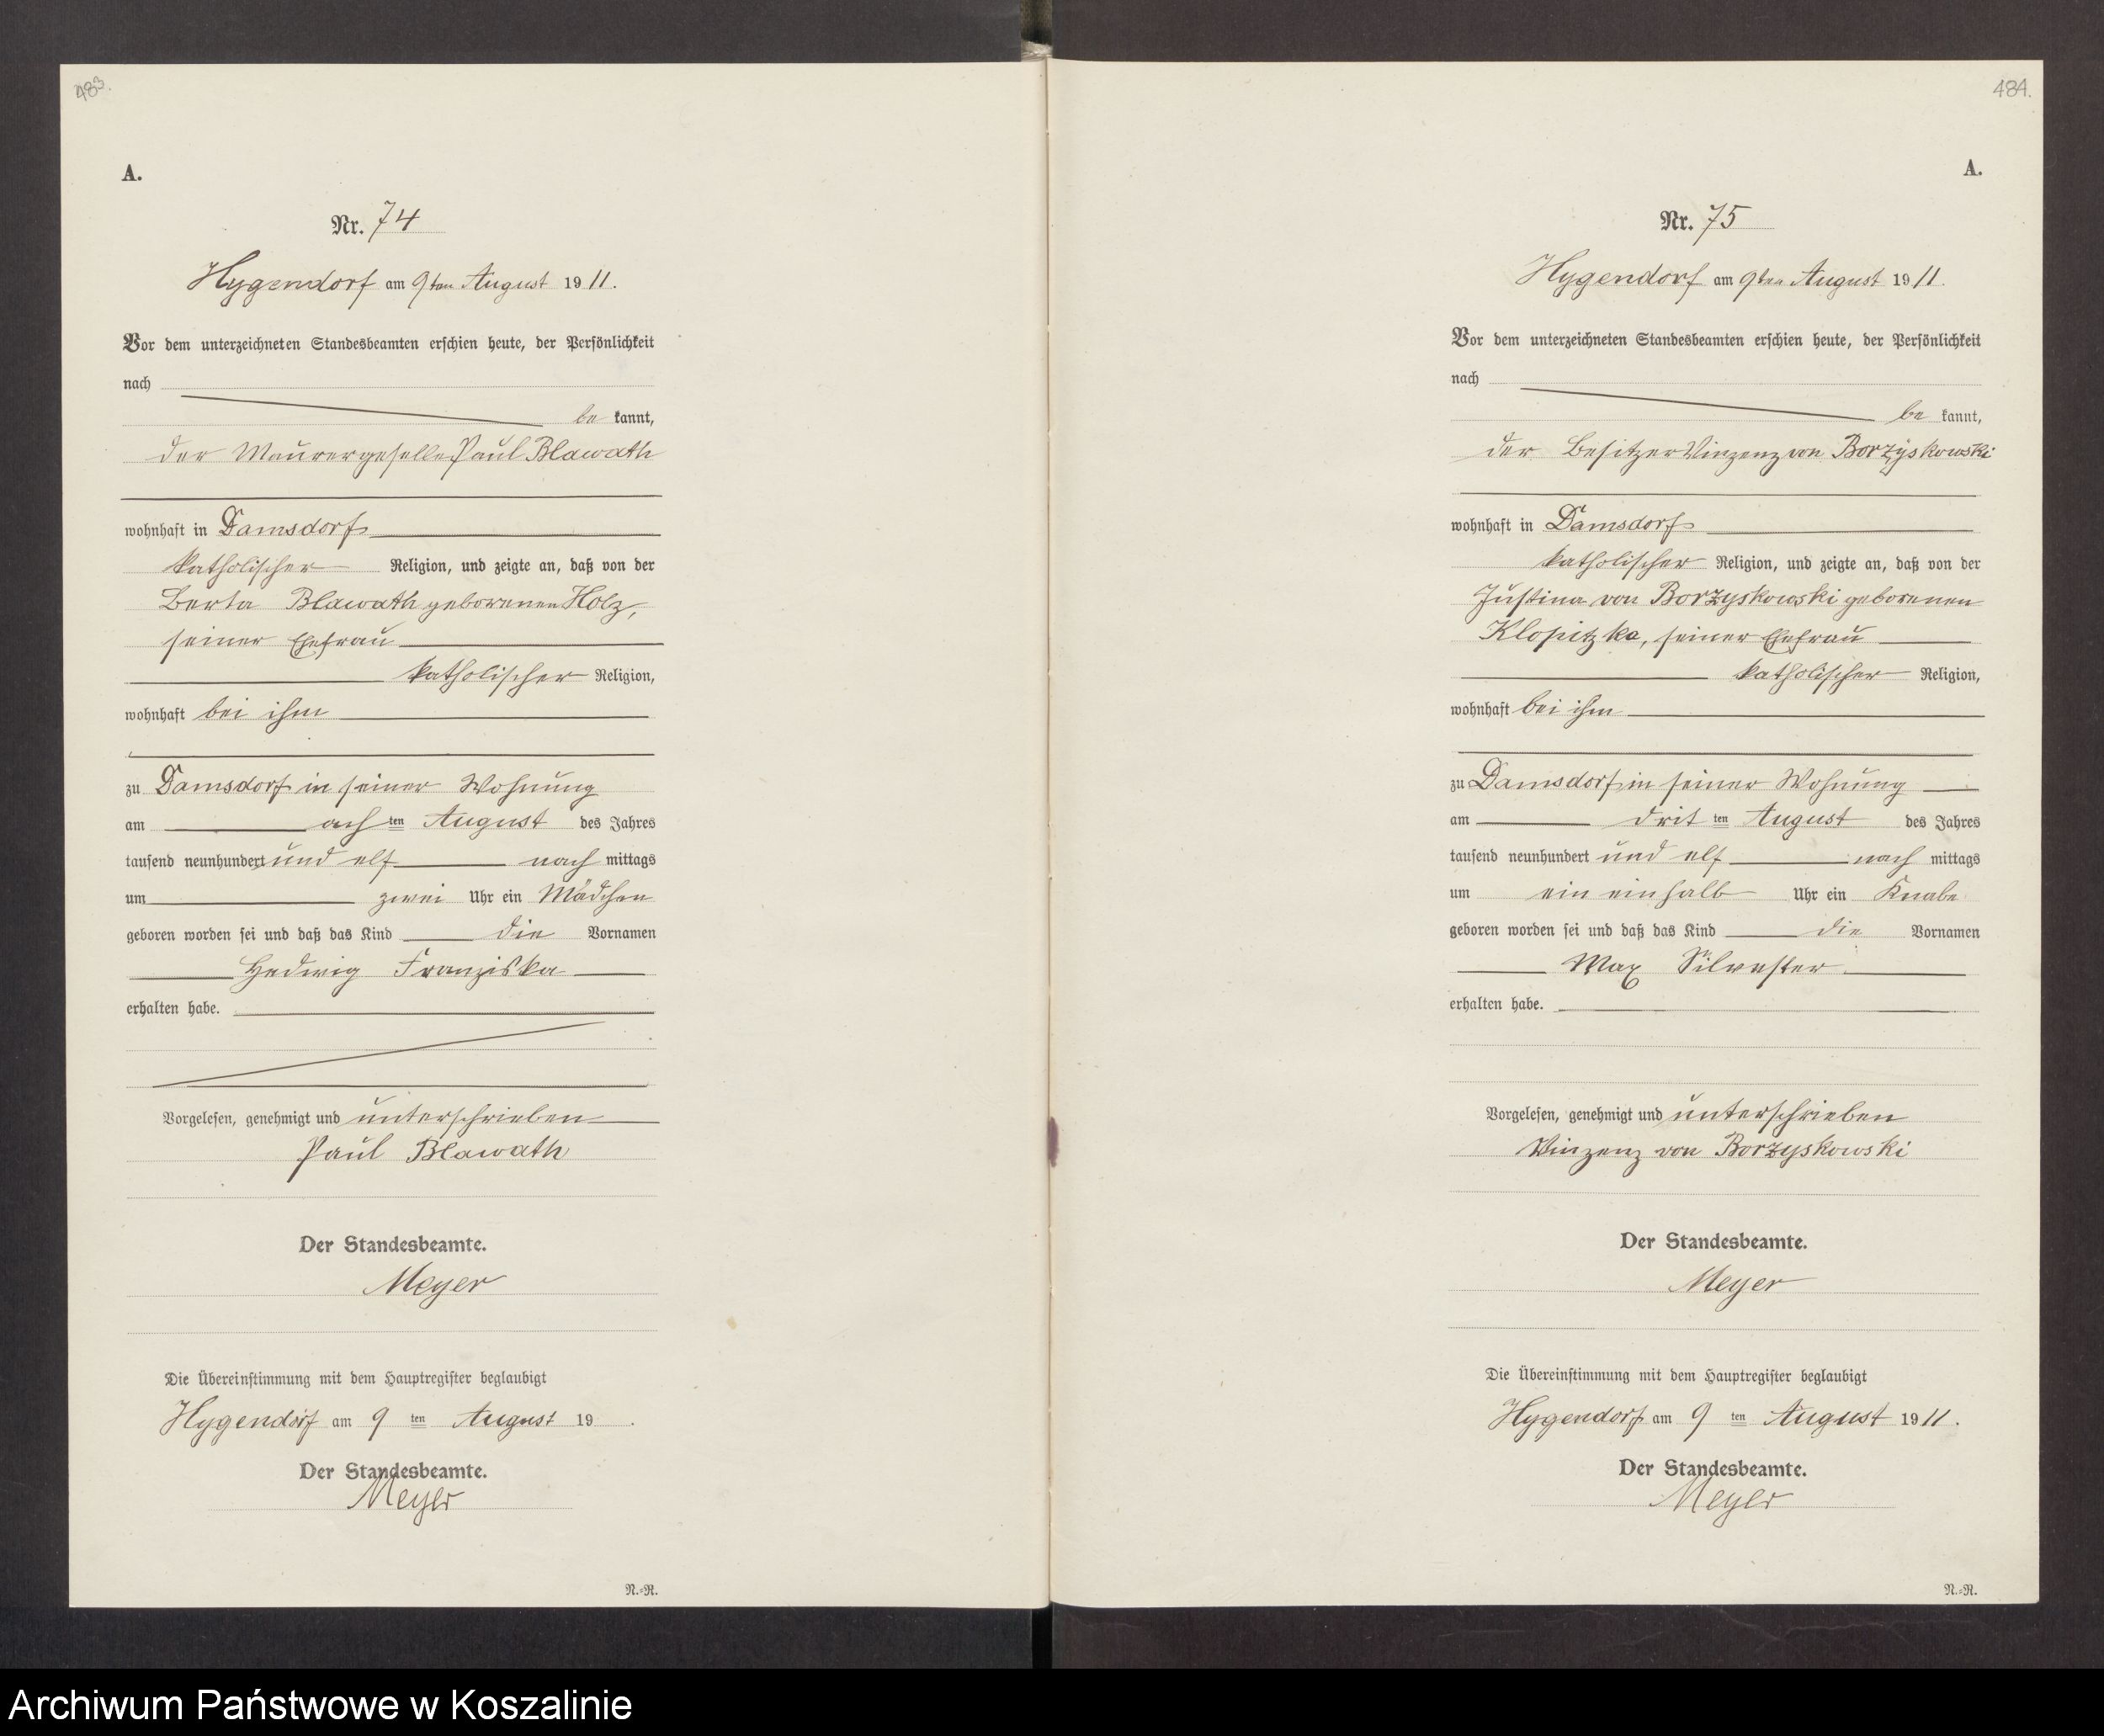 483.
A.
Nr. 74
Hygendorf am 9ten August 1911.
Vor dem unterzeichneten Standesbeamten erschien heute, der Persönlichkeit
nach
be kannt,
der Maurergeselle Paul Blawath
wohnhaft in Damsdorf
katholischer Religion, und zeigte an, daß von der
Berta Blawath geborenen Holz,
seiner Ehefrau
katholischer Religion,
wohnhaft bei ihm
zu Damsdorf in seiner Wohnung
am ach ten August des Jahres
tausend neunhundert und elf nach mittags
um zwei Uhr ein Mädchen
geboren worden sei und daß das Kind die Vornamen
Hedwig Franziska
erhalten habe.
Vorgelesen, genehmigt und unterschrieben
Paul Blawath
Der Standesbeamte.
Meyer
Die Übereinstimmung mit dem Hauptregister beglaubigt
Hygendorf am 9 ten August 19 .
Der Standesbeamte.
Meyer
N.=R.
484.
A.
Nr. 75
Hygendorf am 9ten August 1911.
Vor dem unterzeichneten Standesbeamten erschien heute, der Persönlichkeit
nach
be kannt,
der Besitzer Vinzenz von Borzyskowski
wohnhaft in Damsdorf
katholischer Religion, und zeigte an, daß von der
Justina von Borzyskowski geborenen
Klopitzka, seiner Ehefrau
katholischer Religion,
wohnhaft bei ihm
zu Damsdorf in seiner Wohnung
am drit ten August des Jahres
tausend neunhundert und elf nach mittags
um ein einhalb Uhr ein Knabe
geboren worden sei und daß das Kind die Vornamen
Max Silvester
erhalten habe.
Vorgelesen, genehmigt und unterschrieben
Vinzenz von Borzyskowski
Der Standesbeamte.
Meyer
Die Übereinstimmung mit dem Hauptregister beglaubigt
Hygendorf am 9 ten August 1911.
Der Standesbeamte.
Meyer
N.=R.
Archiwum Państwowe w Koszalinie